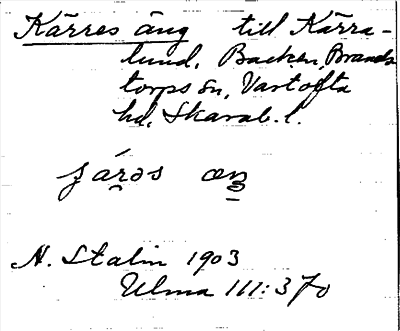 Kärres äng till Kärra-
lund, Backen, Brands
torps sn, Vartofta
hd, Skarab. l.
N. Stalin 1903
Ulma 111:370